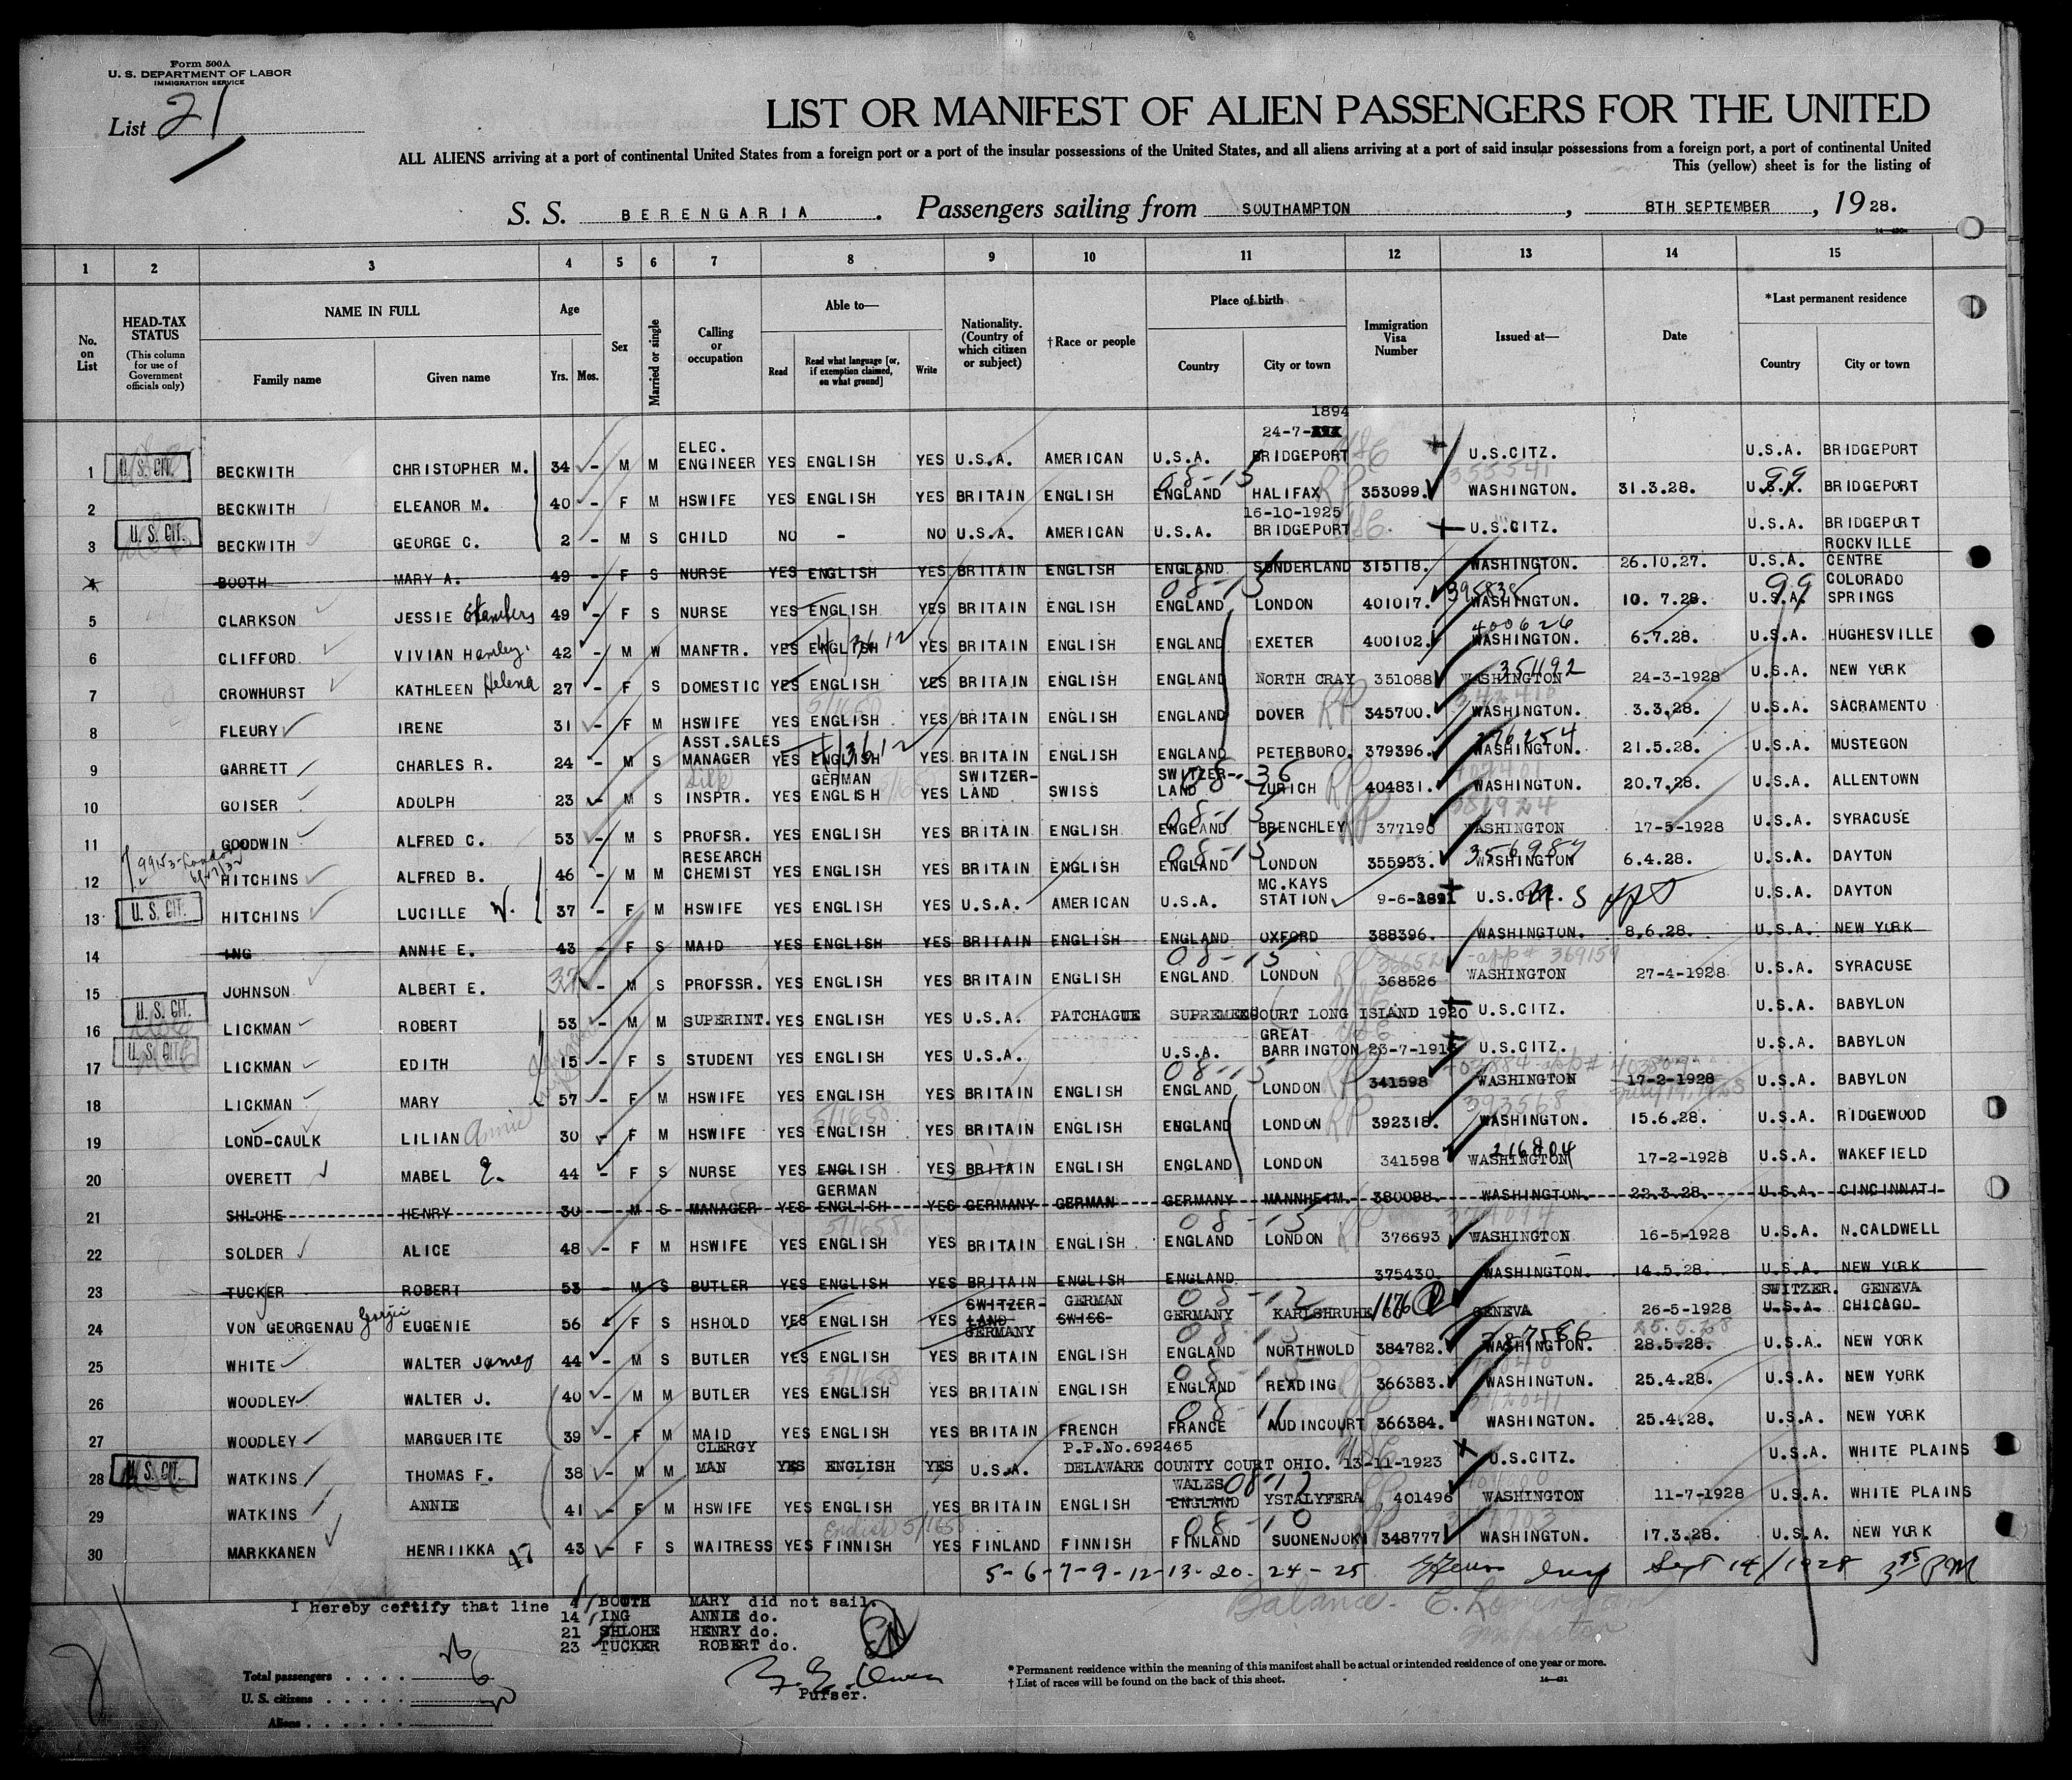 Form 500A
U. S. DEPARTMENT OF LABOR
IMMIGRATION SERVICE
List 21
LIST OR MANIFEST OF ALIEN PASSENGERS FOR THE UNITED
ALL ALIENS arriving at a port of continental United States from a foreign port or a port of the insular possessions of the United States, and all aliens arriving at a port of said insular possessions from a foreign port, a port of continental United
This (yellow) sheet is for the listing of
S. S. BERENGARIA . Passengers sailing from SOUTHAMPTON , 8TH SEPTEMBER , 19 28.
1 2 3 4 5 6 7 8 9 10 11 12 13 14 15
No. on List
HEAD-TAX STATUS
(This column for use of Government officials only)
NAME IN FULL
Family name
Given name
Age
Yrs. Mos.
Sex
Married or single
Calling or occupation
Able to—
Read
Read what language [or, if exemption claimed, on what ground]
Write
Nationality. (Country of which citizen or subject)
†Race or people
Place of birth
Country
City or town
Immigration Visa Number
Issued at—
Date
*Last permanent residence
Country
City or town
1894
24-7-
1 U. S. CIT. BECKWITH CHRISTOPHER M. 34 - M M ELEC. ENGINEER YES ENGLISH YES U.S.A. AMERICAN U.S.A. BRIDGEPORT U.S.CITZ. U.S.A. BRIDGEPORT
2 BECKWITH ELEANOR M. 40 - F M HSWIFE YES ENGLISH YES BRITAIN ENGLISH 08-15 ENGLAND HALIFAX 353099. 355541 WASHINGTON. 31.3.28. U.S.A. 99 BRIDGEPORT
3 U. S. CIT. BECKWITH GEORGE C. 2 - M S CHILD NO - NO U.S.A. AMERICAN U.S.A. 16-10-1925 BRIDGEPORT U.S.CITZ. U.S.A. BRIDGEPORT
4 BOOTH MARY A. 49 - F S NURSE YES ENGLISH YES BRITAIN ENGLISH ENGLAND SUNDERLAND 315118. WASHINGTON. 26.10.27. U.S.A. ROCKVILLE CENTRE
5 CLARKSON JESSIE 49 - F S NURSE YES ENGLISH YES BRITAIN ENGLISH 08-15 ENGLAND LONDON 401017. 395838 WASHINGTON. 10.7.28. U.S.A. 99 COLORADO SPRINGS
6 CLIFFORD VIVIAN 42 - M W MANFTR. YES ENGLISH YES BRITAIN ENGLISH ENGLAND EXETER 400102. 400626 WASHINGTON. 6.7.28. U.S.A. HUGHESVILLE
7 CROWHURST KATHLEEN Helena 27 - F S DOMESTIC YES ENGLISH YES BRITAIN ENGLISH ENGLAND NORTH CRAY 351088 WASHINGTON 24-3-1928 U.S.A. NEW YORK
8 FLEURY IRENE 31 - F M HSWIFE YES 5/1650 ENGLISH YES BRITAIN ENGLISH ENGLAND DOVER RP 345700. WASHINGTON. 3.3.28. U.S.A. SACRAMENTO
9 GARRETT CHARLES R. 24 - M S ASST.SALES MANAGER YES ENGLISH YES BRITAIN ENGLISH ENGLAND PETERBORO. 379396. 276254 WASHINGTON. 21.5.28. U.S.A. MUSTEGON
10 GOISER ADOLPH 23 - M S Silk INSPTR. YES GERMAN ENGLISH YES SWITZER-LAND SWISS SWITZER-LAND 08-36 ZURICH RP 404831. WASHINGTON. 20.7.28. U.S.A. ALLENTOWN
11 GOODWIN ALFRED C. 53 - M S PROFSR. YES ENGLISH YES BRITAIN ENGLISH 08-15 ENGLAND BRENCHLEY RP 377190 WASHINGTON 17-5-1928 U.S.A. SYRACUSE
12 HITCHINS ALFRED B. 46 - M M RESEARCH CHEMIST YES ENGLISH YES BRITAIN ENGLISH 08-15 ENGLAND LONDON 355953. 356987 WASHINGTON 6.4.28. U.S.A. DAYTON
13 U. S. CIT. HITCHINS LUCILLE W. 37 - F M HSWIFE YES ENGLISH YES U.S.A. AMERICAN U.S.A. MC.KAYS STATION 9-6-1891 U.S.CITZ. U.S.A. DAYTON
14 ING ANNIE E. 43 - F S MAID YES ENGLISH YES BRITAIN ENGLISH ENGLAND OXFORD 388396. WASHINGTON. 8.6.28. U.S.A. NEW YORK
15 JOHNSON ALBERT E. 37 - M S PROFSSR. YES ENGLISH YES BRITAIN ENGLISH 08-15 ENGLAND LONDON RP 368526 app# 369159 WASHINGTON 27-4-1928 U.S.A. SYRACUSE
16 U. S. CIT. LICKMAN ROBERT 53 - M M SUPERINT. YES ENGLISH YES U.S.A. PATCHAGUE SUPREME COURT LONG ISLAND 1920 U.S.CITZ. U.S.A. BABYLON
17 U. S. CIT. LICKMAN EDITH 15 - F S STUDENT YES ENGLISH YES U.S.A. U.S.A. GREAT BARRINGTON 23-7-1913 U.S.CITZ. U.S.A. BABYLON
18 LICKMAN MARY 57 - F M HSWIFE YES ENGLISH YES BRITAIN ENGLISH 08-15 ENGLAND LONDON RP 341598 WASHINGTON 17-2-1928 U.S.A. BABYLON
19 LOND-CAULK LILIAN Annie 30 - F M HSWIFE YES 5/1658 ENGLISH YES BRITAIN ENGLISH ENGLAND LONDON RP 392318. 393568 WASHINGTON. 15.6.28. U.S.A. RIDGEWOOD
20 OVERETT MABEL E. 44 - F S NURSE YES ENGLISH YES BRITAIN ENGLISH ENGLAND LONDON 341598 216804 WASHINGTON 17-2-1928 U.S.A. WAKEFIELD
21 SHLOHE HENRY 30 - M S MANAGER YES GERMAN ENGLISH YES GERMANY GERMAN GERMANY MANNHEIM. 380098. WASHINGTON. 22.3.28. U.S.A. CINCINNATI
22 SOLDER ALICE 48 - F M HSWIFE YES 5/1658 ENGLISH YES BRITAIN ENGLISH 08-15 ENGLAND LONDON RP 376693 WASHINGTON 16-5-1928 U.S.A. N.CALDWELL
23 TUCKER ROBERT 53 - M S BUTLER YES ENGLISH YES BRITAIN ENGLISH ENGLAND 375430. WASHINGTON. 14.5.28. U.S.A. NEW YORK
24 VON GEORGENAU EUGENIE 56 - F S HSHOLD YES ENGLISH YES SWITZER-LAND GERMANY GERMAN SWISS 08-12 GERMANY KARLSHRUHE 1676 GENEVA 26-5-1928 SWITZER. GENEVA U.S.A. CHICAGO
25 WHITE WALTER James 44 - M S BUTLER YES ENGLISH YES BRITAIN ENGLISH 08-15 ENGLAND NORTHWOLD 384782. WASHINGTON. 28.5.28. U.S.A. NEW YORK
26 WOODLEY WALTER J. 40 - M M BUTLER YES 5/1658 ENGLISH YES BRITAIN ENGLISH 08-15 ENGLAND READING RP 366383. WASHINGTON. 25.4.28. U.S.A. NEW YORK
27 WOODLEY MARGUERITE 39 - F M MAID YES ENGLISH YES BRITAIN FRENCH 08-11 FRANCE AUDINCOURT 366384. WASHINGTON. 25.4.28. U.S.A. NEW YORK
28 U. S. CIT. WATKINS THOMAS F. 38 - M M CLERGY MAN YES ENGLISH YES U.S.A. P.P.No.692465 DELAWARE COUNTY COURT OHIO. 13-11-1923 U.S.CITZ. U.S.A. WHITE PLAINS
29 WATKINS ANNIE 41 - F M HSWIFE YES ENGLISH YES BRITAIN ENGLISH WALES ENGLAND YSTALYFERA 401496 WASHINGTON 11-7-1928 U.S.A. WHITE PLAINS
30 MARKKANEN HENRIIKKA 43 - F S WAITRESS YES English 5/1658 FINNISH YES FINLAND FINNISH 08-10 FINLAND SUONENJOKI 348777 WASHINGTON. 17.3.28. U.S.A. NEW YORK
5-6-7-9-12-13-20-24-25 Sept 14/1928 3 15 PM
I hereby certify that line 4 BOOTH MARY did not sail.
14 ING ANNIE do.
21 SHLOHE HENRY do.
23 TUCKER ROBERT do.
Balance.
Inspector
Purser.
Total passengers
U. S. citizens
Aliens
* Permanent residence within the meaning of this manifest shall be actual or intended residence of one year or more.
† List of races will be found on the back of this sheet.